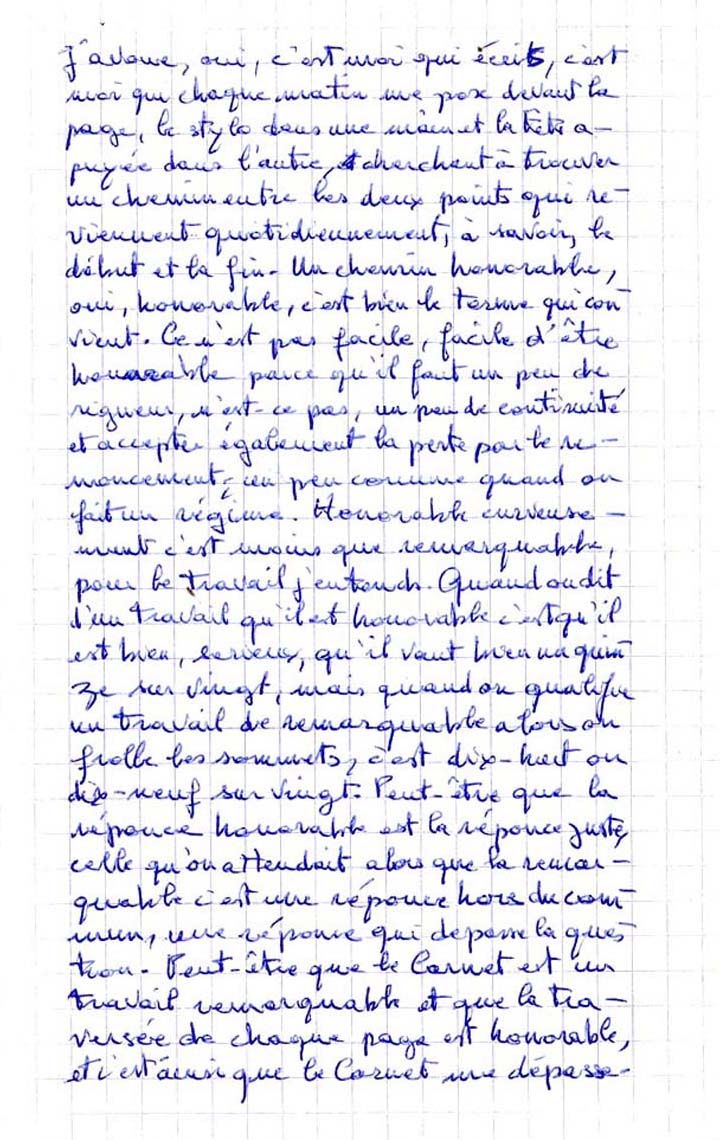 J'avoue, oui, c'est moi qui écrit, c'est
moi qui chaque matin me pose devant la
page, le stylo dans une main et la tête a-
puyée dans l'autre, cherchant à trouver
un chemin entre les deux points qui re-
viennent quotidiennement, à savoir, le
début et la fin. Un chemin honorable,
oui, honorable, c'est bien le terme qui con-
vient. Ce n'est pas facile, facile d'être
honorable parce qu'il faut un peu de
rigueur, n'est-ce pas, un peu de continuité
et accepter également la perte par le re-
noncement, un peu comme quand on
fait un régime. Honorable curieuse-
ment c'est moins que remarquable,
pour le travail j'entends. Quand on dit
d'un travail qu'il est honorable c'est qu'il
est bien, serieux, qu'il vaut bien un quin-
ze sur vingt, mais quand on qualifie
un travail de remarquable alors on
frolle les sommets, c'est dix-huit ou
dix-neuf sur vingt. Peut-être que la
réponce honorable est la réponce juste,
celle qu'on attendait alors que la remar-
quable c'est une réponce hors du com-
mun, une réponse qui depasse la ques-
tion. Peut-être que le Carnet est un
travail remarquable et que la tra-
versée de chaque page est honorable,
et c'est ainsi que le Carnet me dépasse.